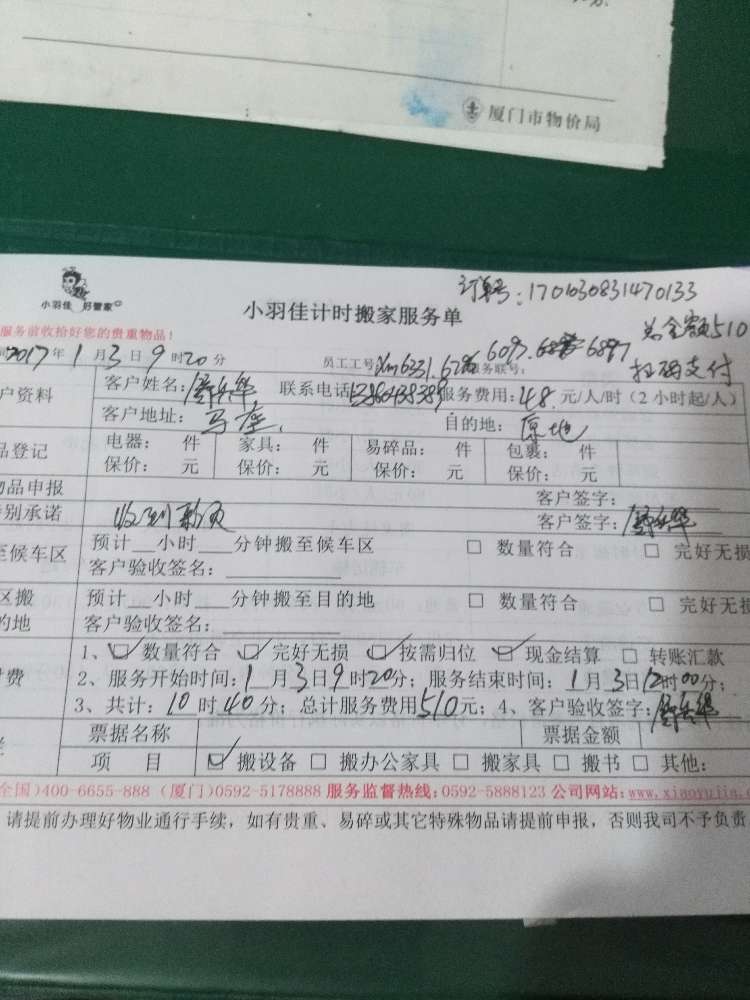 厦门市物价局
小羽佳 好管家
订单号:170103083147013​3
小羽佳计时搬家服务单
总金额510
扫码支付
服务前收拾好您的贵重物品!
2017年1月3日9时20分 员工工号 服务联号:
户资料 客户姓名: 联系电话 服务费用:48元/人/时(2小时起/人)
客户地址: 目的地:原地
品登记 电器: 件 家具: 件 易碎品: 件 包裹: 件
保价: 元 保价: 元 保价: 元 保价: 元
物品申报 客户签字:
特别承诺 收到 客户签字:
至候车区 预计__小时__分钟搬至候车区 □ 数量符合 □ 完好无损
客户验收签名:
区搬 预计__小时__分钟搬至目的地 □ 数量符合 □ 完好无损
的地 客户验收签名:
付费 1、☑数量符合 ☑完好无损 ☑按需归位 ☑现金结算 □ 转账汇款
2、服务开始时间:1月3日9时20分;服务结束时间:1月3日12时00分;
3、共计:10时40分;总计服务费用510元;4、客户验收签字:
票据名称 票据金额
项 目 ☑搬设备 □ 搬办公家具 □ 搬家具 □ 搬书 □ 其他:
全国)400-6655-888 (厦门)0592-5178888 服务监督热线:0592-5888123 公司网站:www.xiaoyujia.c
请提前办理好物业通行手续，如有贵重、易碎或其它特殊物品请提前申报，否则我司不予负责